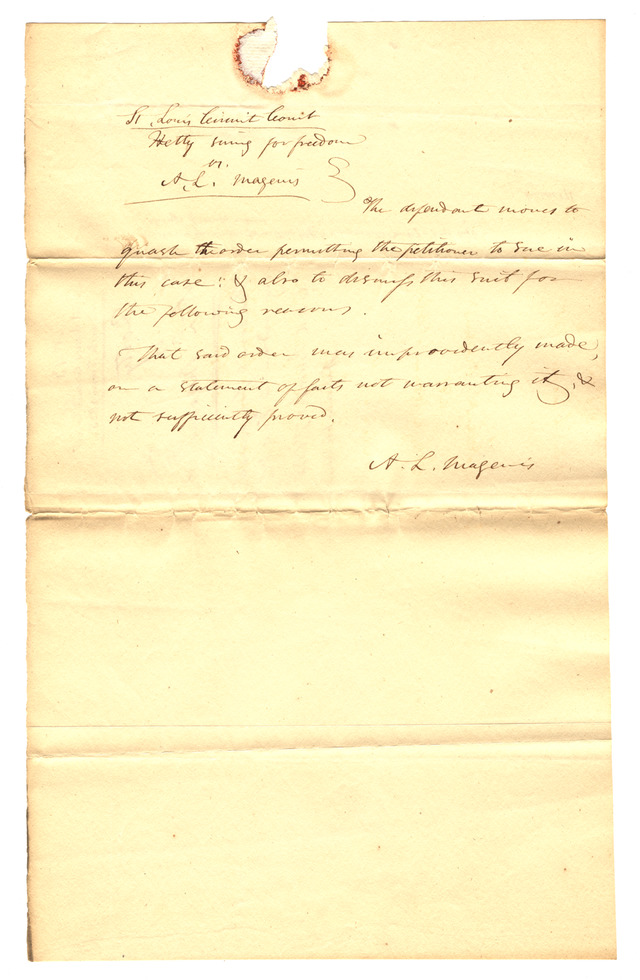 St. Louis Circuit Court
Hetty suing for freedom
vs.
A. L. Magenis
The defendant moves to
quash the order permitting the petitioner to sue in
this case: & also to dismiss this suit for
the following reasons.
That said order was improvidently made,
on a statement of facts not warranting it, &
not sufficiently proved.
A. L. Magenis